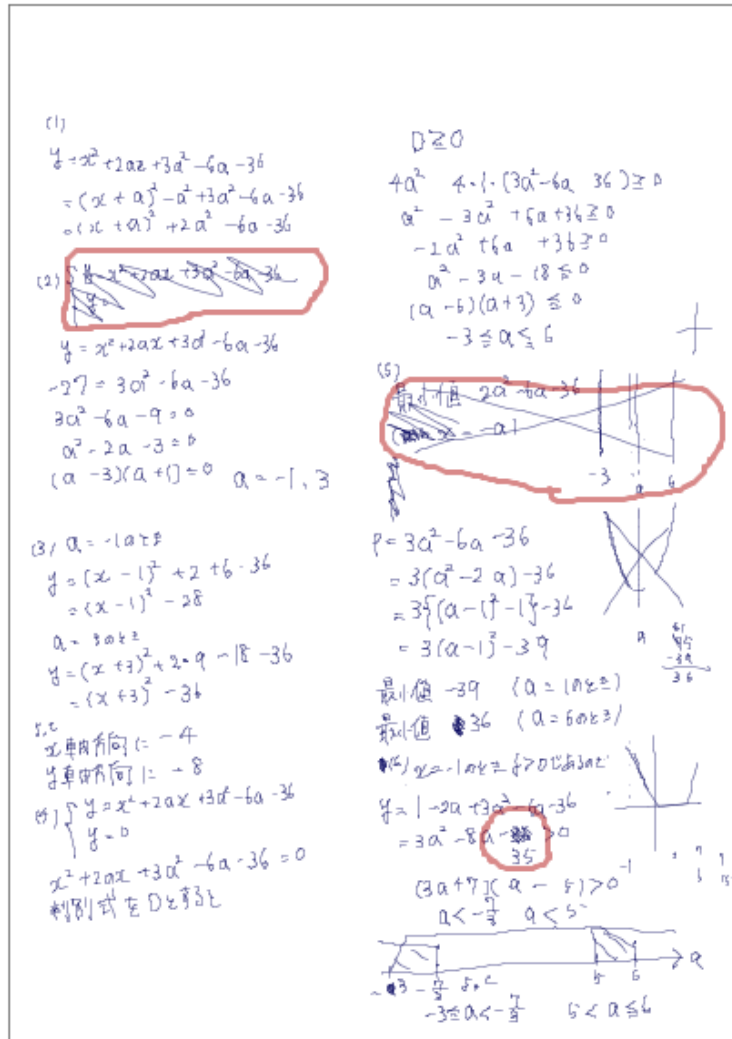 (1)
y=x²+2ax+3a²-6a-36
=(x+a)²-a²+3a²-6a-36
=(x+a)²+2a²-6a-36
(2) { y=x²+2ax+3a²-6a-36
y=
y=x²+2ax+3a²-6a-36
-27=3a²-6a-36
3a²-6a-9=0
a²-2a-3=0
(a-3)(a+1)=0 a=-1,3
(3) a=-1のとき
y=(x-1)²+2+6-36
=(x-1)²-28
a=3のとき
y=(x+3)²+2・9-18-36
=(x+3)²-36
よって
x軸方向に -4
y軸方向に -8
(4) { y=x²+2ax+3a²-6a-36
y=0
x²+2ax+3a²-6a-36=0
判別式をDとすると
D≧0
4a² 4・1・(3a²-6a 36)≧0
a²-3a²+6a+36≧0
-2a²+6a+36≧0
a²-3a-18≦0
(a-6)(a+3)≦0
-3≦a≦6
(5)
最小値 2a²-6a-36
x=-a)
-3 a 6
P=3a²-6a-36
=3(a²-2a)-36
=3{(a-1)²-1}-36
=3(a-1)²-39
a
-39
36
最小値 -39 (a=1のとき)
最小値 36 (a=6のとき)
(6) x=-1のとき y>0であるので
y=1-2a+3a²-6a-36
=3a²-8a-35>0
(3a+7)(a-5)>0
a<-7/3 a<5
-3 -7/3 5 6 a
よって
-3≦a<-7/3 5<a≦6